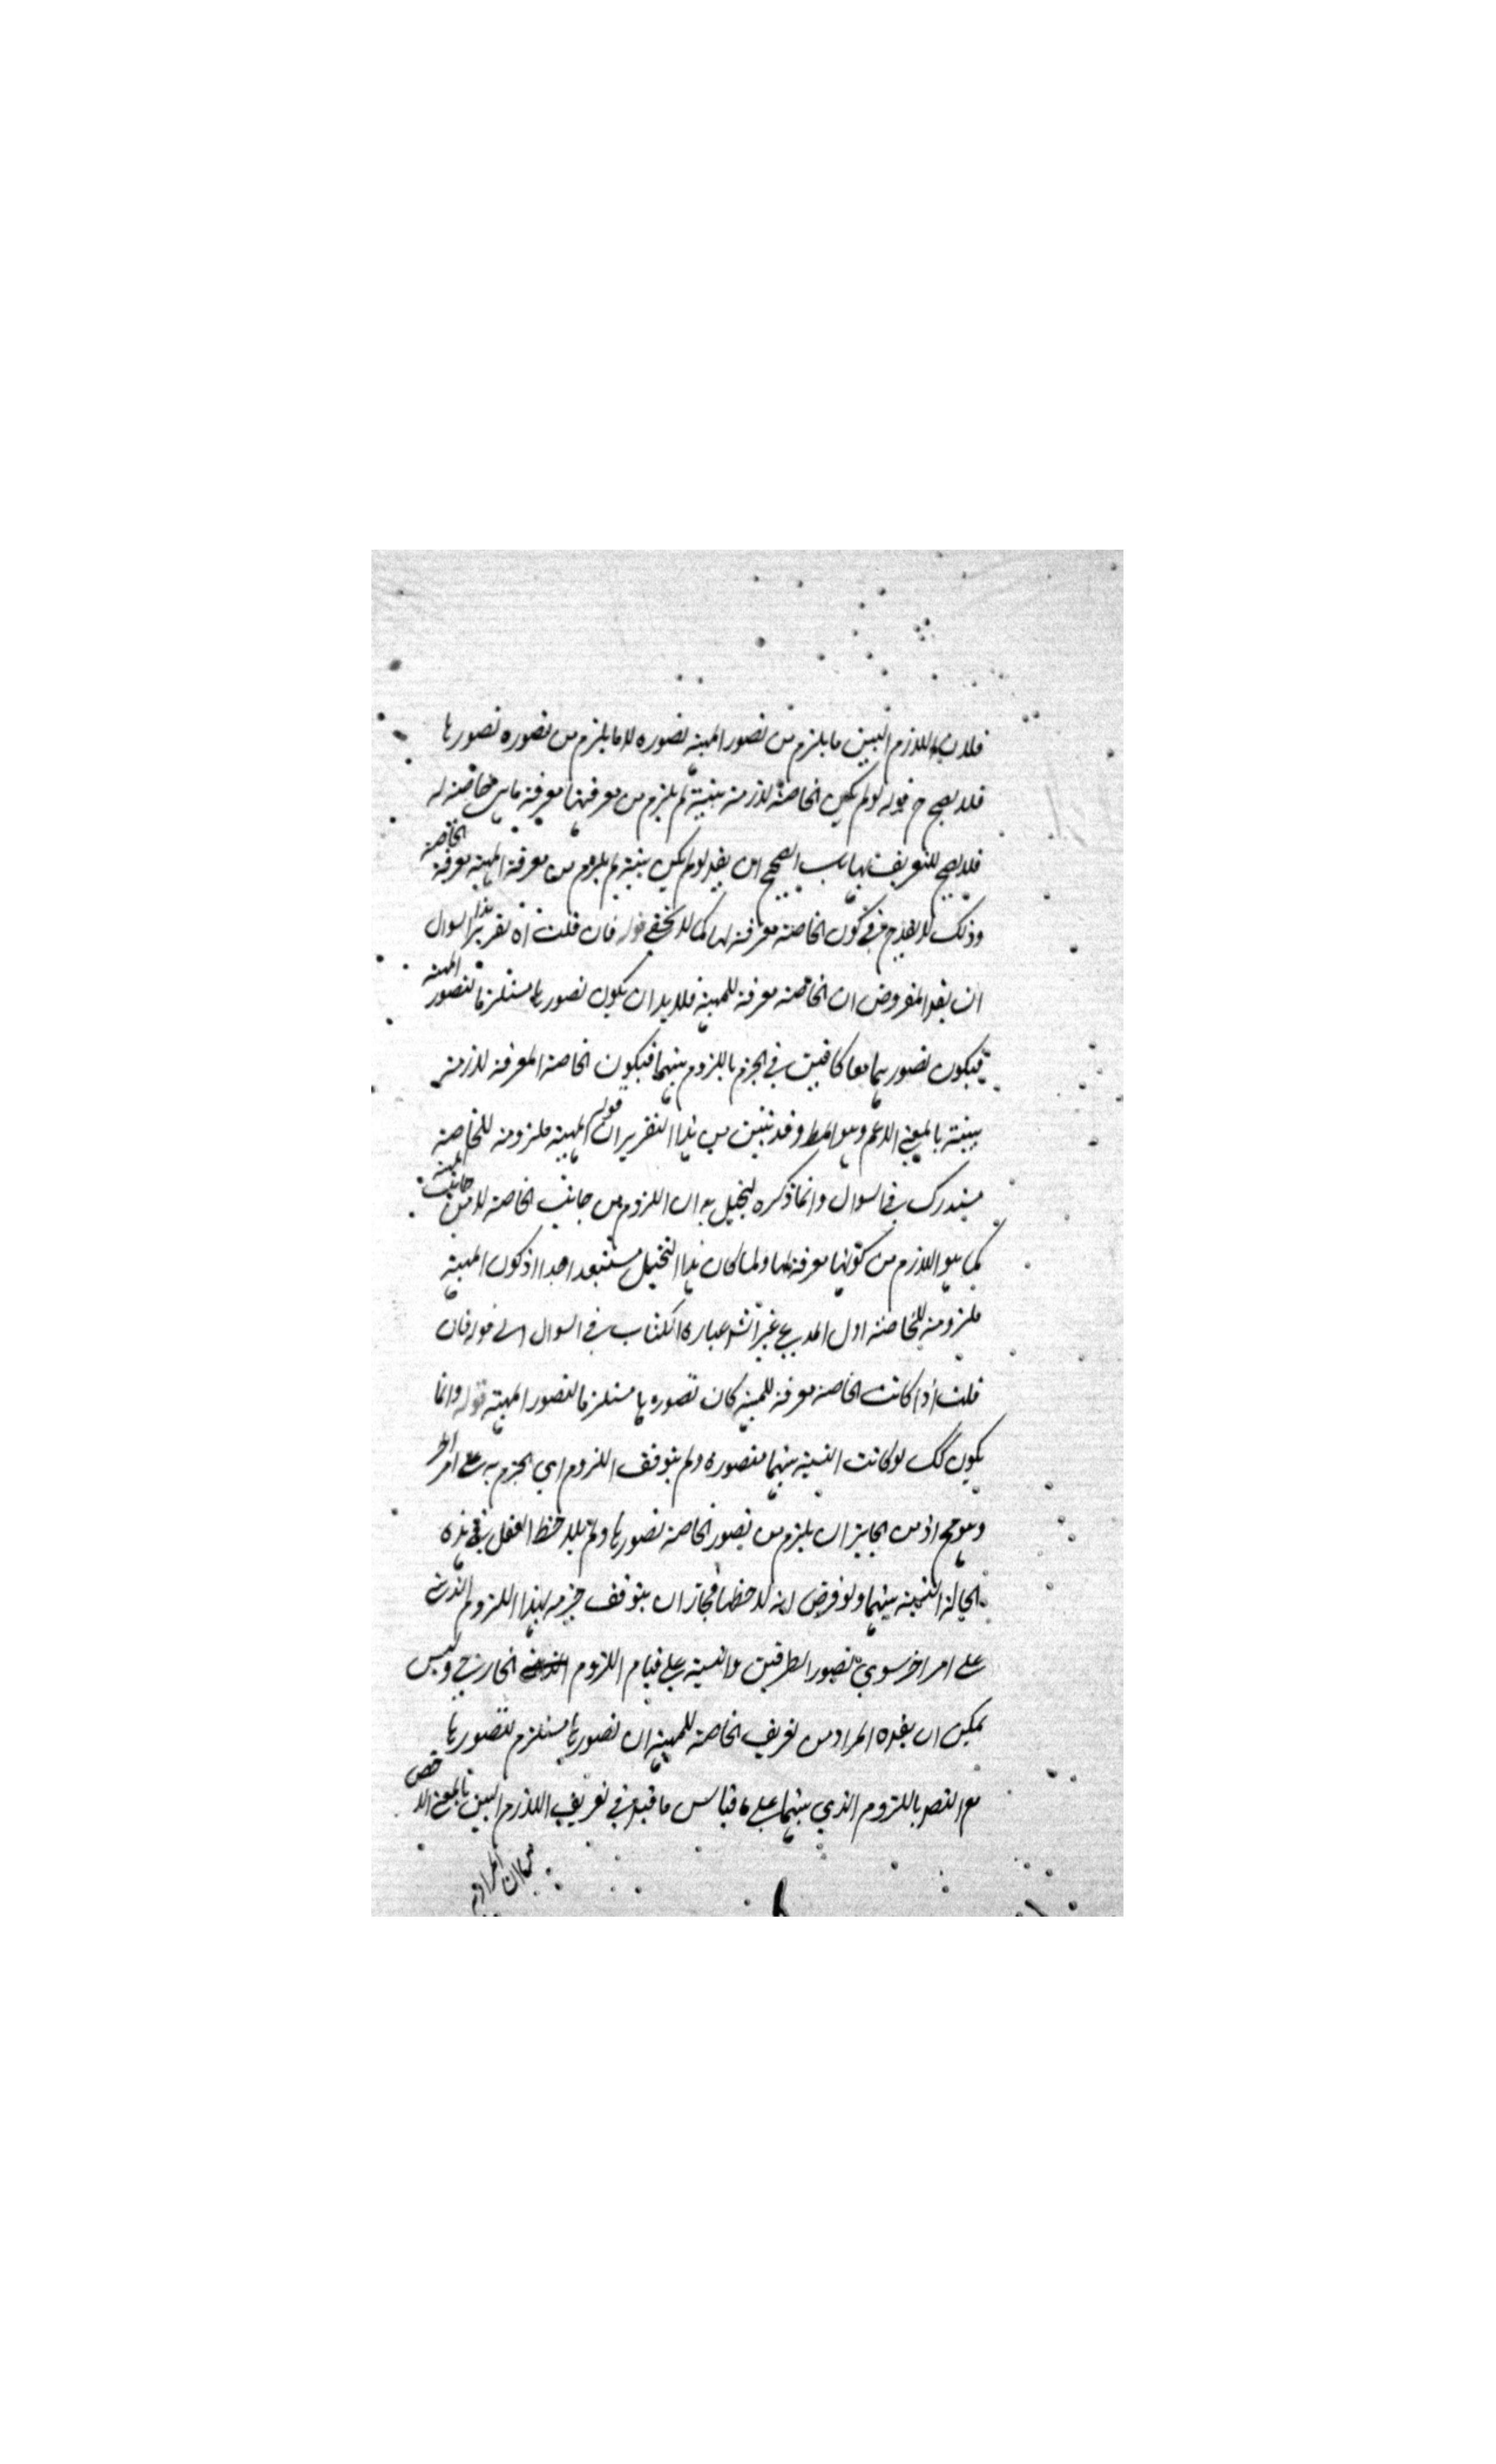 فلان اللازم البين ما يلزم من تصور المهية تصوره لا ما يلزم من تصوره تصورها
فلا يصح ح قوله لو لم يكن الخاصة لازمة بينة لم يلزم من معرفتها معرفة ما هي خاصة له
فلا يصح للتعريف بها بل الصحيح ان يقه لو لم يكن بينة لم يلزم من معرفة المهية معرفة الخاصة
وذلك لا يقدح في كون الخاصة معرفة لها كما لا يخفى قوله فان قلت اه تقرير هذا السوال
ان يقه المفروض ان الخاصة معرفة للمهية فلا بد ان يكون تصورها مستلزما لتصور المهية
فيكون تصورهما معا كافيين في الجزم باللزوم بينهما فيكون الخاصة المعرفة لازمة
بينة بالمعنى الاعم وهو المط وقد تبين من هذا التقرير ان قوله المهية ملزومة للخاصة
مستدرك في السوال وانما ذكره ليخيل به ان اللزوم من جانب الخاصة لا من جانب المهية
كما هو اللازم من كونها معرفة لها ولما كان هذا التخيل مستبعدا جدا اذ كون المهية
ملزومة للخاصة اول المدعى غير الش عبارة الكتاب في السوال الى قوله فان
قلت اذا كانت الخاصة معرفة للمهية كان تصورها مستلزما لتصور المهية قوله وانما
يكون كك لو كانت النسبة بينهما متصورة ولم يتوقف اللزوم اي الجزم به على امر اخر
وهو مم اذ من الجايز ان يلزم من تصور الخاصة تصورها ولم يلاحظ العقل في هذه
الحالة النسبة بينهما ولو فرض انه لاحظها فجاز ان يتوقف جزمه بهذا اللزوم الذهني
على امر اخر سوى تصور الطرفين والنسبة على قيام اللزوم الخارجي وليس
يمكن ان يقه المراد من تعريف الخاصة للمهية ان تصورها مستلزم لتصورها
مع التصر باللزوم الذي بينهما على قياس ما قيل في تعريف اللازم البين بالمعنى الاخص
من ان المراد به